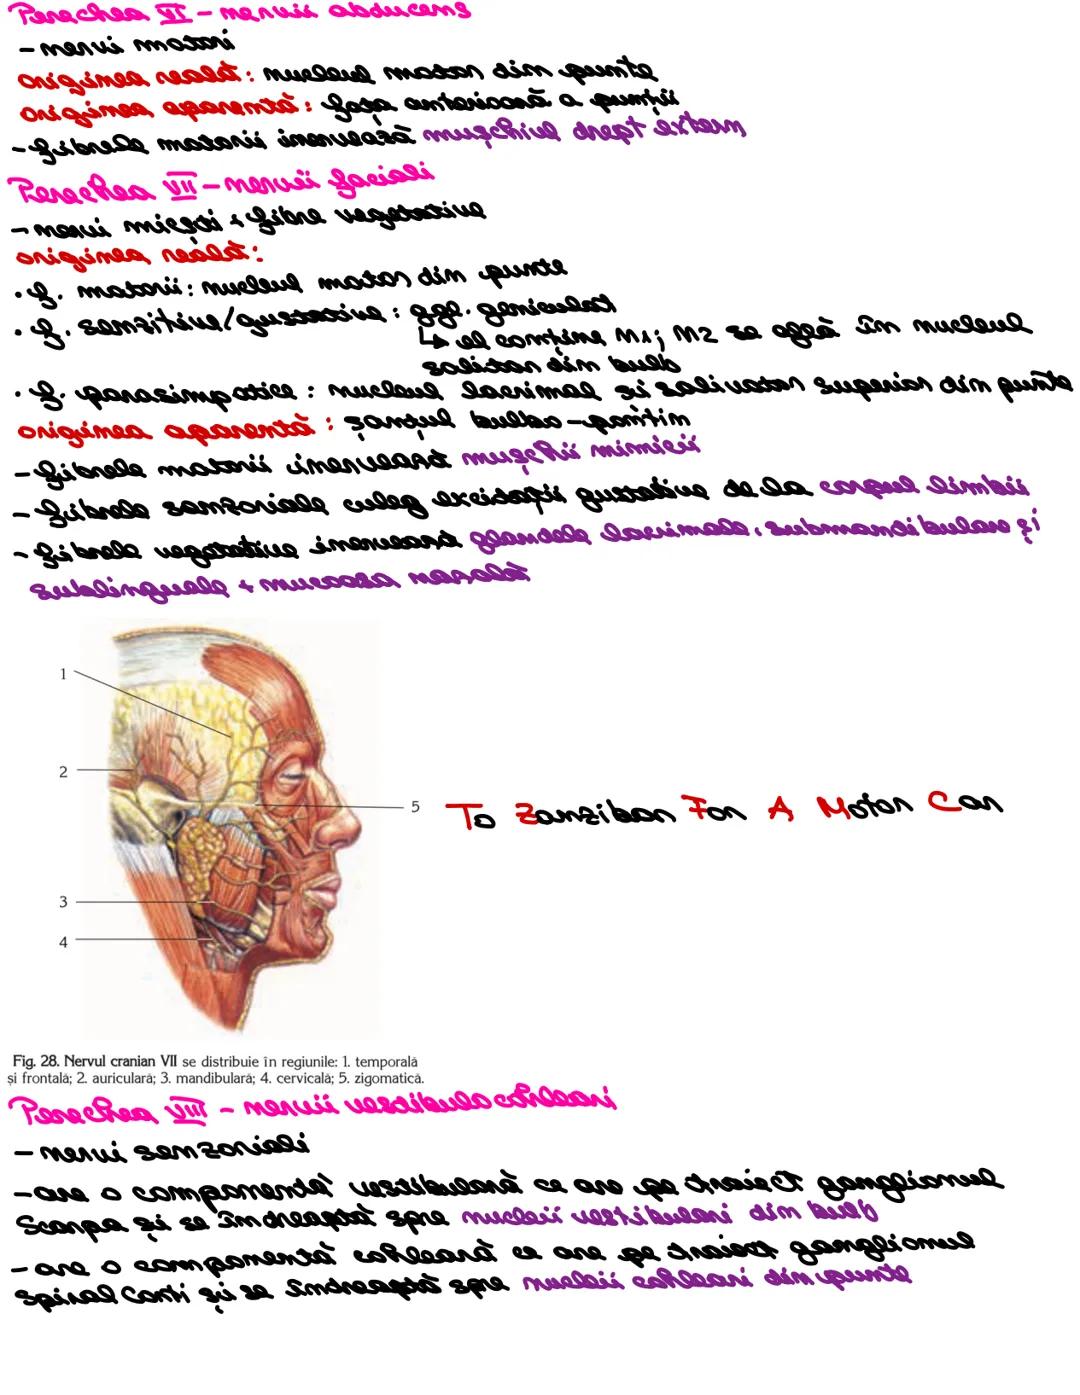 Perechea VI - nervii abducens
- nervi motori
originea reală: nucleul motor din punte
originea aparentă: fața anterioară a punții
- fibrele motorii inervează mușchiul drept extern
Perechea VII - nervii faciali
- nervi micști + fibre vegetative
originea reală:
• f. motorii: nucleul motor din punte
• f. senzitive/gustative: ggl. geniculat
↳ el conține N1; N2 se află în nucleul
solitar din bulb
• f. parasimpatice: nucleul lacrimal și salivator superior din punte
originea aparentă: șanțul bulbo-pontin
- fibrele motorii inervează mușchii mimicii
- fibrele senzoriale culeg excitații gustative de la corpul limbii
- fibrele vegetative inervează glandele lacrimale, submandibulare și
sublinguale + mucoasa nazală
1
2
5 To Zanzibar For A Motor Car
3
4
Fig. 28. Nervul cranian VII se distribuie în regiunile: 1. temporală
și frontală; 2. auriculară; 3. mandibulară; 4. cervicală; 5. zigomatică.
Perechea VIII - nervii vestibulocohleari
- nervi senzoriali
- are o componentă vestibulară ce are pe traiect ganglionul
Scarpa și se îndreaptă spre nucleii vestibulari din bulb
- are o componentă cohleară ce are pe traiect ganglionul
spiral Corti și se îndreaptă spre nucleii cohleari din punte